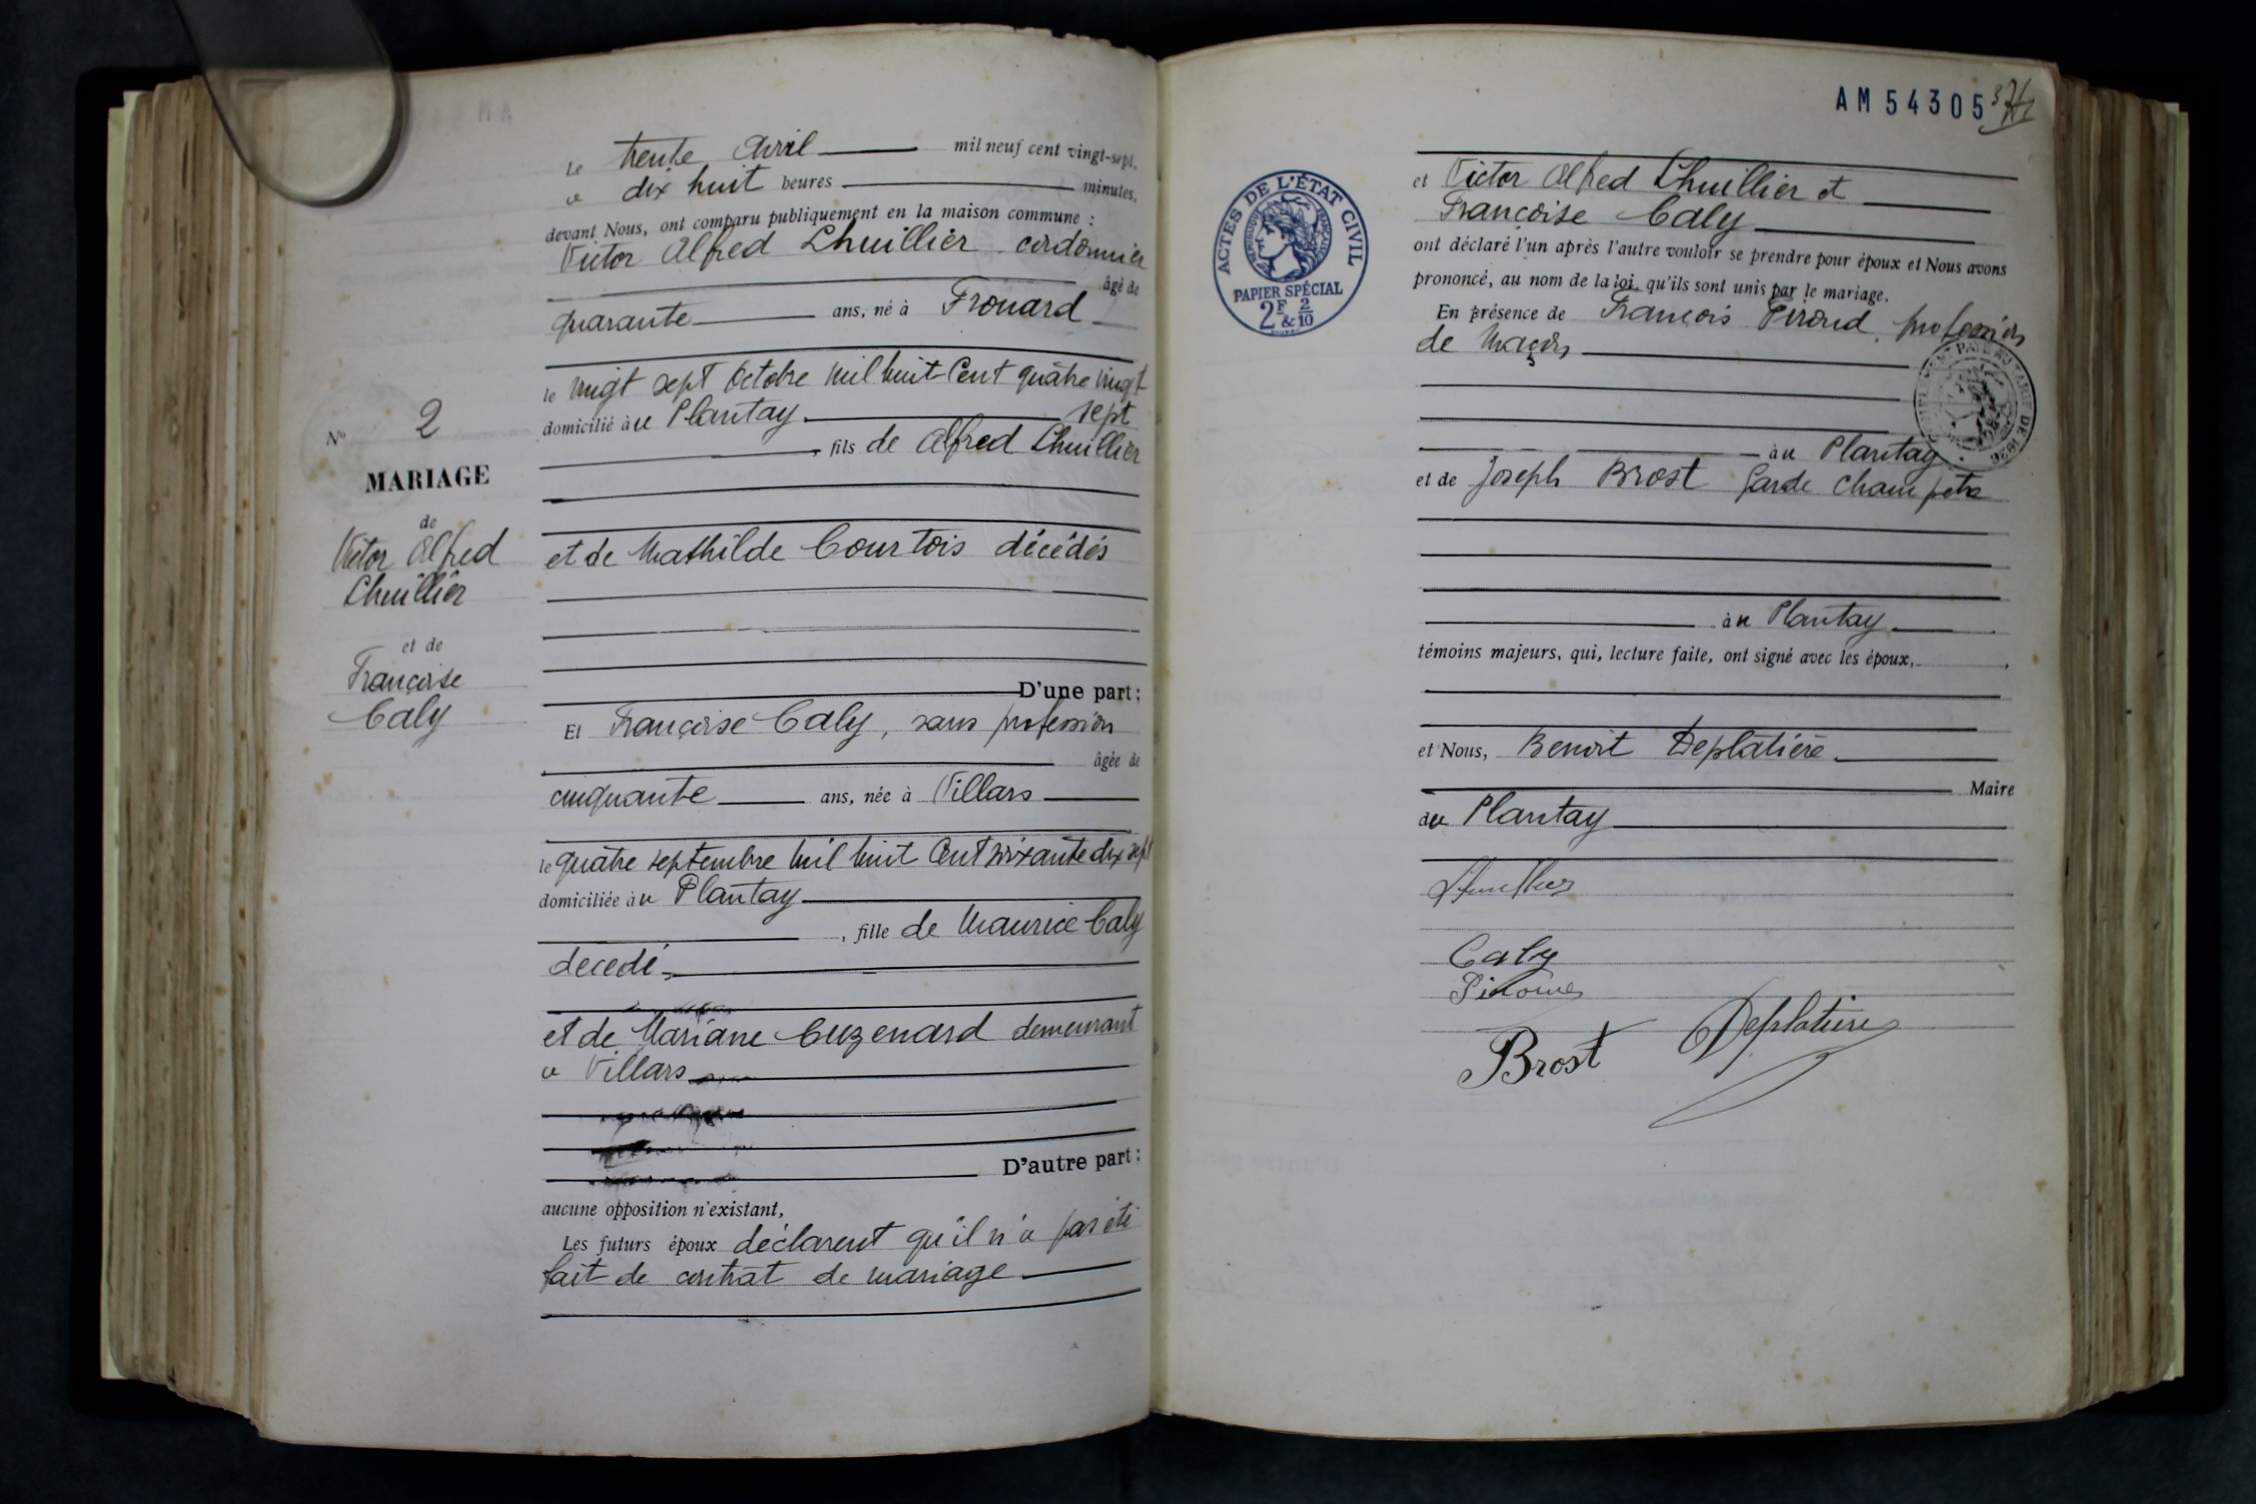 Le trente Avril mil neuf cent vingt-sept,
a dix huit heures minutes,
devant Nous, ont comparu publiquement en la maison commune :
Victor Alfred Lhuillier cordonnier
âgé de
quarante ans, né à Frouard
le vingt sept Octobre mil huit Cent quatre vingt
sept
domicilié au Plantay
, fils de Alfred Lhuillier
et de Mathilde Courtois décédés
D'une part ;
Et Françoise Caly, sans profession
âgée de
cinquante ans, née à Villars
le quatre septembre mil huit Cent soixante dix sept
domiciliée au Plantay
, fille de Maurice Caly
décédé
et de Mariane Cuzenard demeurant
a Villars
D'autre part ;
aucune opposition n'existant,
Les futurs époux déclarent qu'il n'a pas été
fait de contrat de mariage
N° 2
MARIAGE
de
Victor Alfred
Lhuillier
et de
Françoise
Caly
AM 54305
ACTES DE L'ÉTAT CIVIL
PAPIER SPÉCIAL
2F & 2/10
et Victor Alfred Lhuillier et
Françoise Caly
ont déclaré l'un après l'autre vouloir se prendre pour époux et Nous avons
prononcé, au nom de la loi, qu'ils sont unis par le mariage.
En présence de François profession
de Maçon
au Plantay
et de Joseph Brost Garde Champetre
au Plantay
témoins majeurs, qui, lecture faite, ont signé avec les époux,
et Nous, Benoit Deplatière
Maire
du Plantay
Lhuillier
Caly
Brost Deplatière